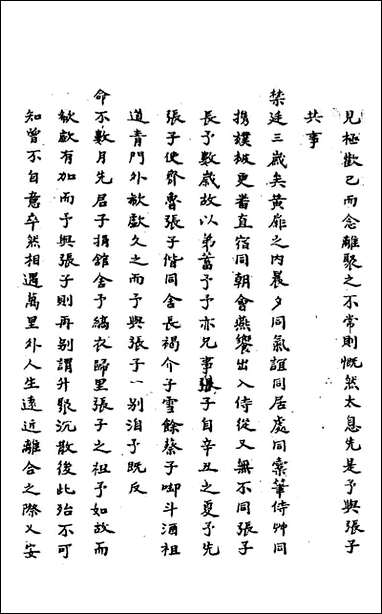 見極歡已而念離聚之不常則慨然太息先是予與張子
共事
禁廷三歲矣黃扉之内晨夕同氣誼同居處同橐筆侍艸同
携襆被更番直宿同朝會燕饗出入侍從又無不同張子
長予數歲故以弟蓄予予亦兄事張子自辛丑之夏予先
張子使齊魯張子偕同舍長禢介子雪餘蔡子啣斗酒祖
道青門外欷歔久之而予與張子一别洎予既反
命不數月先君子捐館舍予縞衣歸里張子之祖予如故而
欷歔有加而予與張子則再别謂升沉散後此殆不可
知曾不自意卒然相遇萬里外人生遠近離合之際乂安